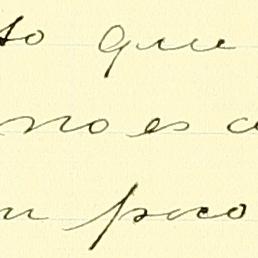 so que
no es
poco